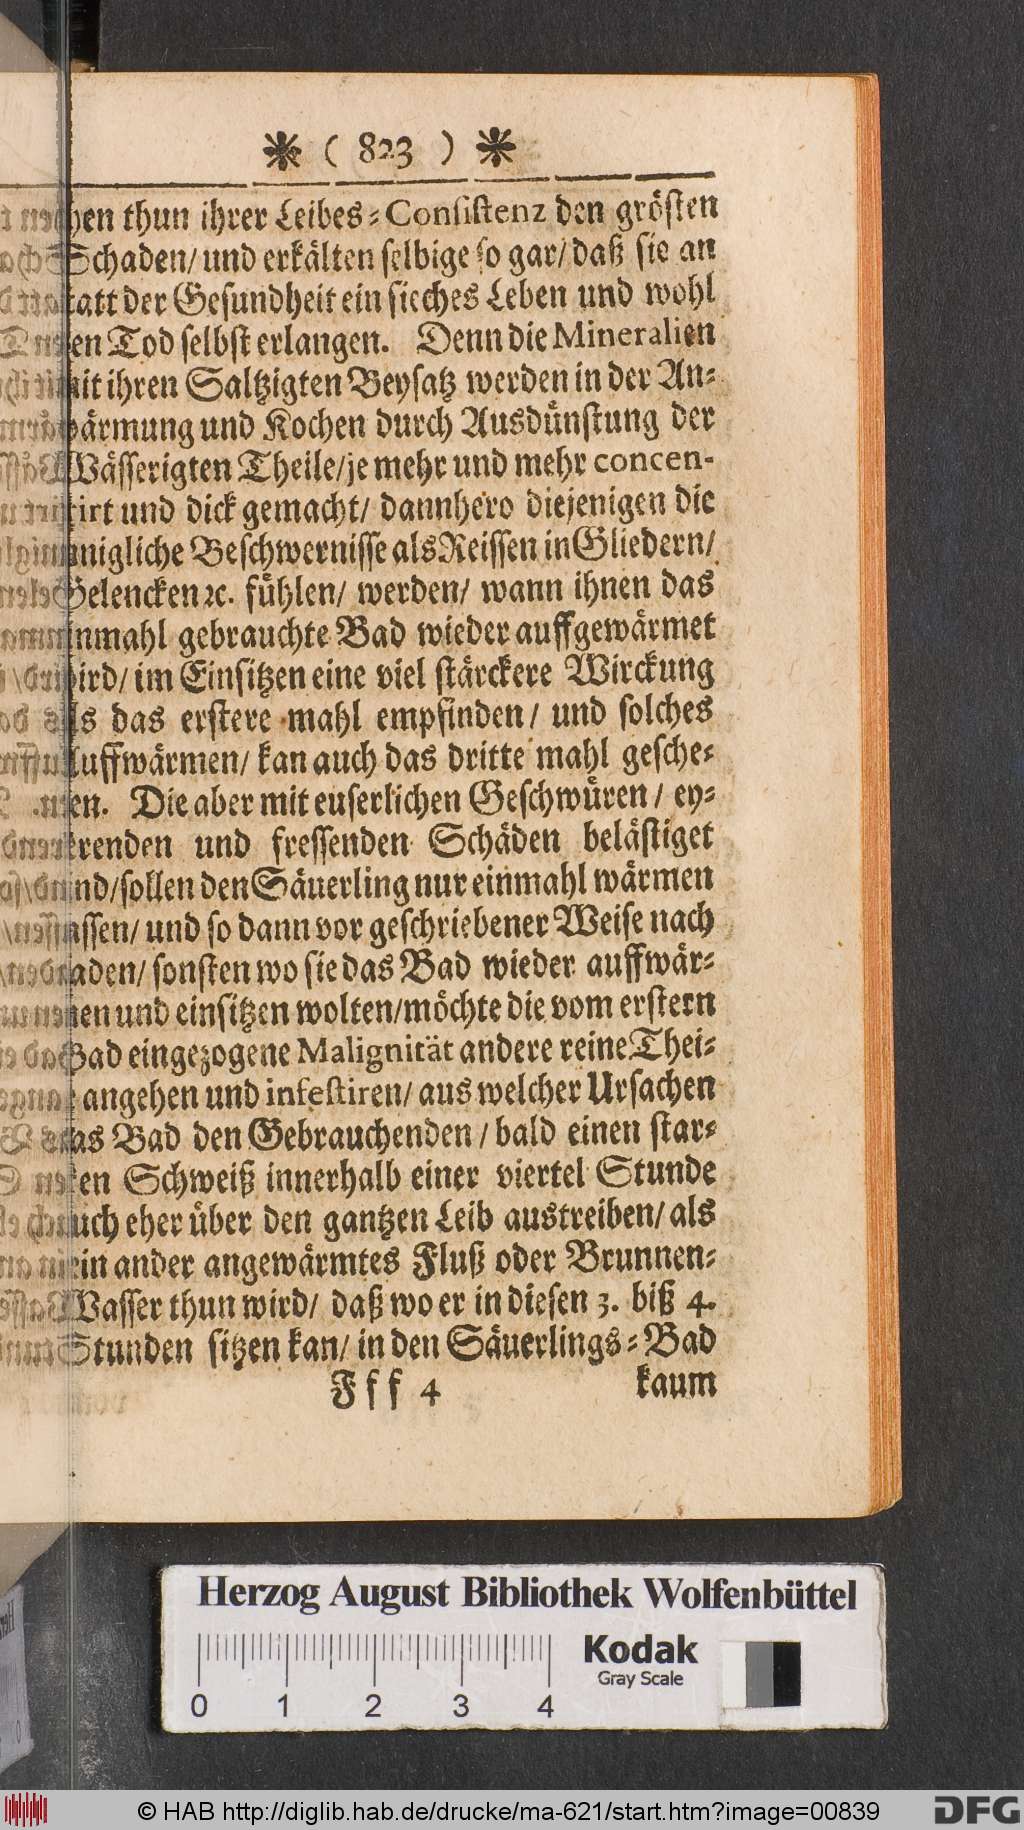 * ( 823 ) *
chen thun ihrer Leibes-Consistenz den grösten
Schaden/ und erkälten selbige so gar/ daß sie an
statt der Gesundheit ein sieches Leben und wohl
den Tod selbst erlangen. Denn die Mineralien
mit ihren Saltzigten Beysatz werden in der An-
wärmung und Kochen durch Ausdünstung der
Wässerigten Theile/ je mehr und mehr concen-
trirt und dick gemacht/ dannhero diejenigen die
innigliche Beschwernisse als Reissen in Gliedern/
Gelencken ꝛc. fühlen/ werden/ wann ihnen das
einmahl gebrauchte Bad wieder auffgewärmet
wird/ im Einsitzen eine viel stärckere Wirckung
als das erstere mahl empfinden/ und solches
Auffwärmen/ kan auch das dritte mahl gesche-
hen. Die aber mit euserlichen Geschwüren/ ey-
terenden und fressenden Schäden belästiget
sind/ sollen den Säuerling nur einmahl wärmen
lassen/ und so dann vor geschriebener Weise nach
baden/ sonsten wo sie das Bad wieder auffwär-
men und einsitzen wolten/ möchte die vom erstern
Bad eingezogene Malignität andere reine Thei-
le angehen und infestiren/ aus welcher Ursachen
das Bad den Gebrauchenden/ bald einen star-
cken Schweiß innerhalb einer viertel Stunde
auch eher über den gantzen Leib austreiben/ als
ein ander angewärmtes Fluß oder Brunnen-
Wasser thun wird/ daß wo er in diesen 3. biß 4.
Stunden sitzen kan/ in den Säuerlings-Bad
Fff 4 kaum
Herzog August Bibliothek Wolfenbüttel
Kodak
Gray Scale
0 1 2 3 4
© HAB http://diglib.hab.de/drucke/ma-621/start.htm?image=00839
DFG